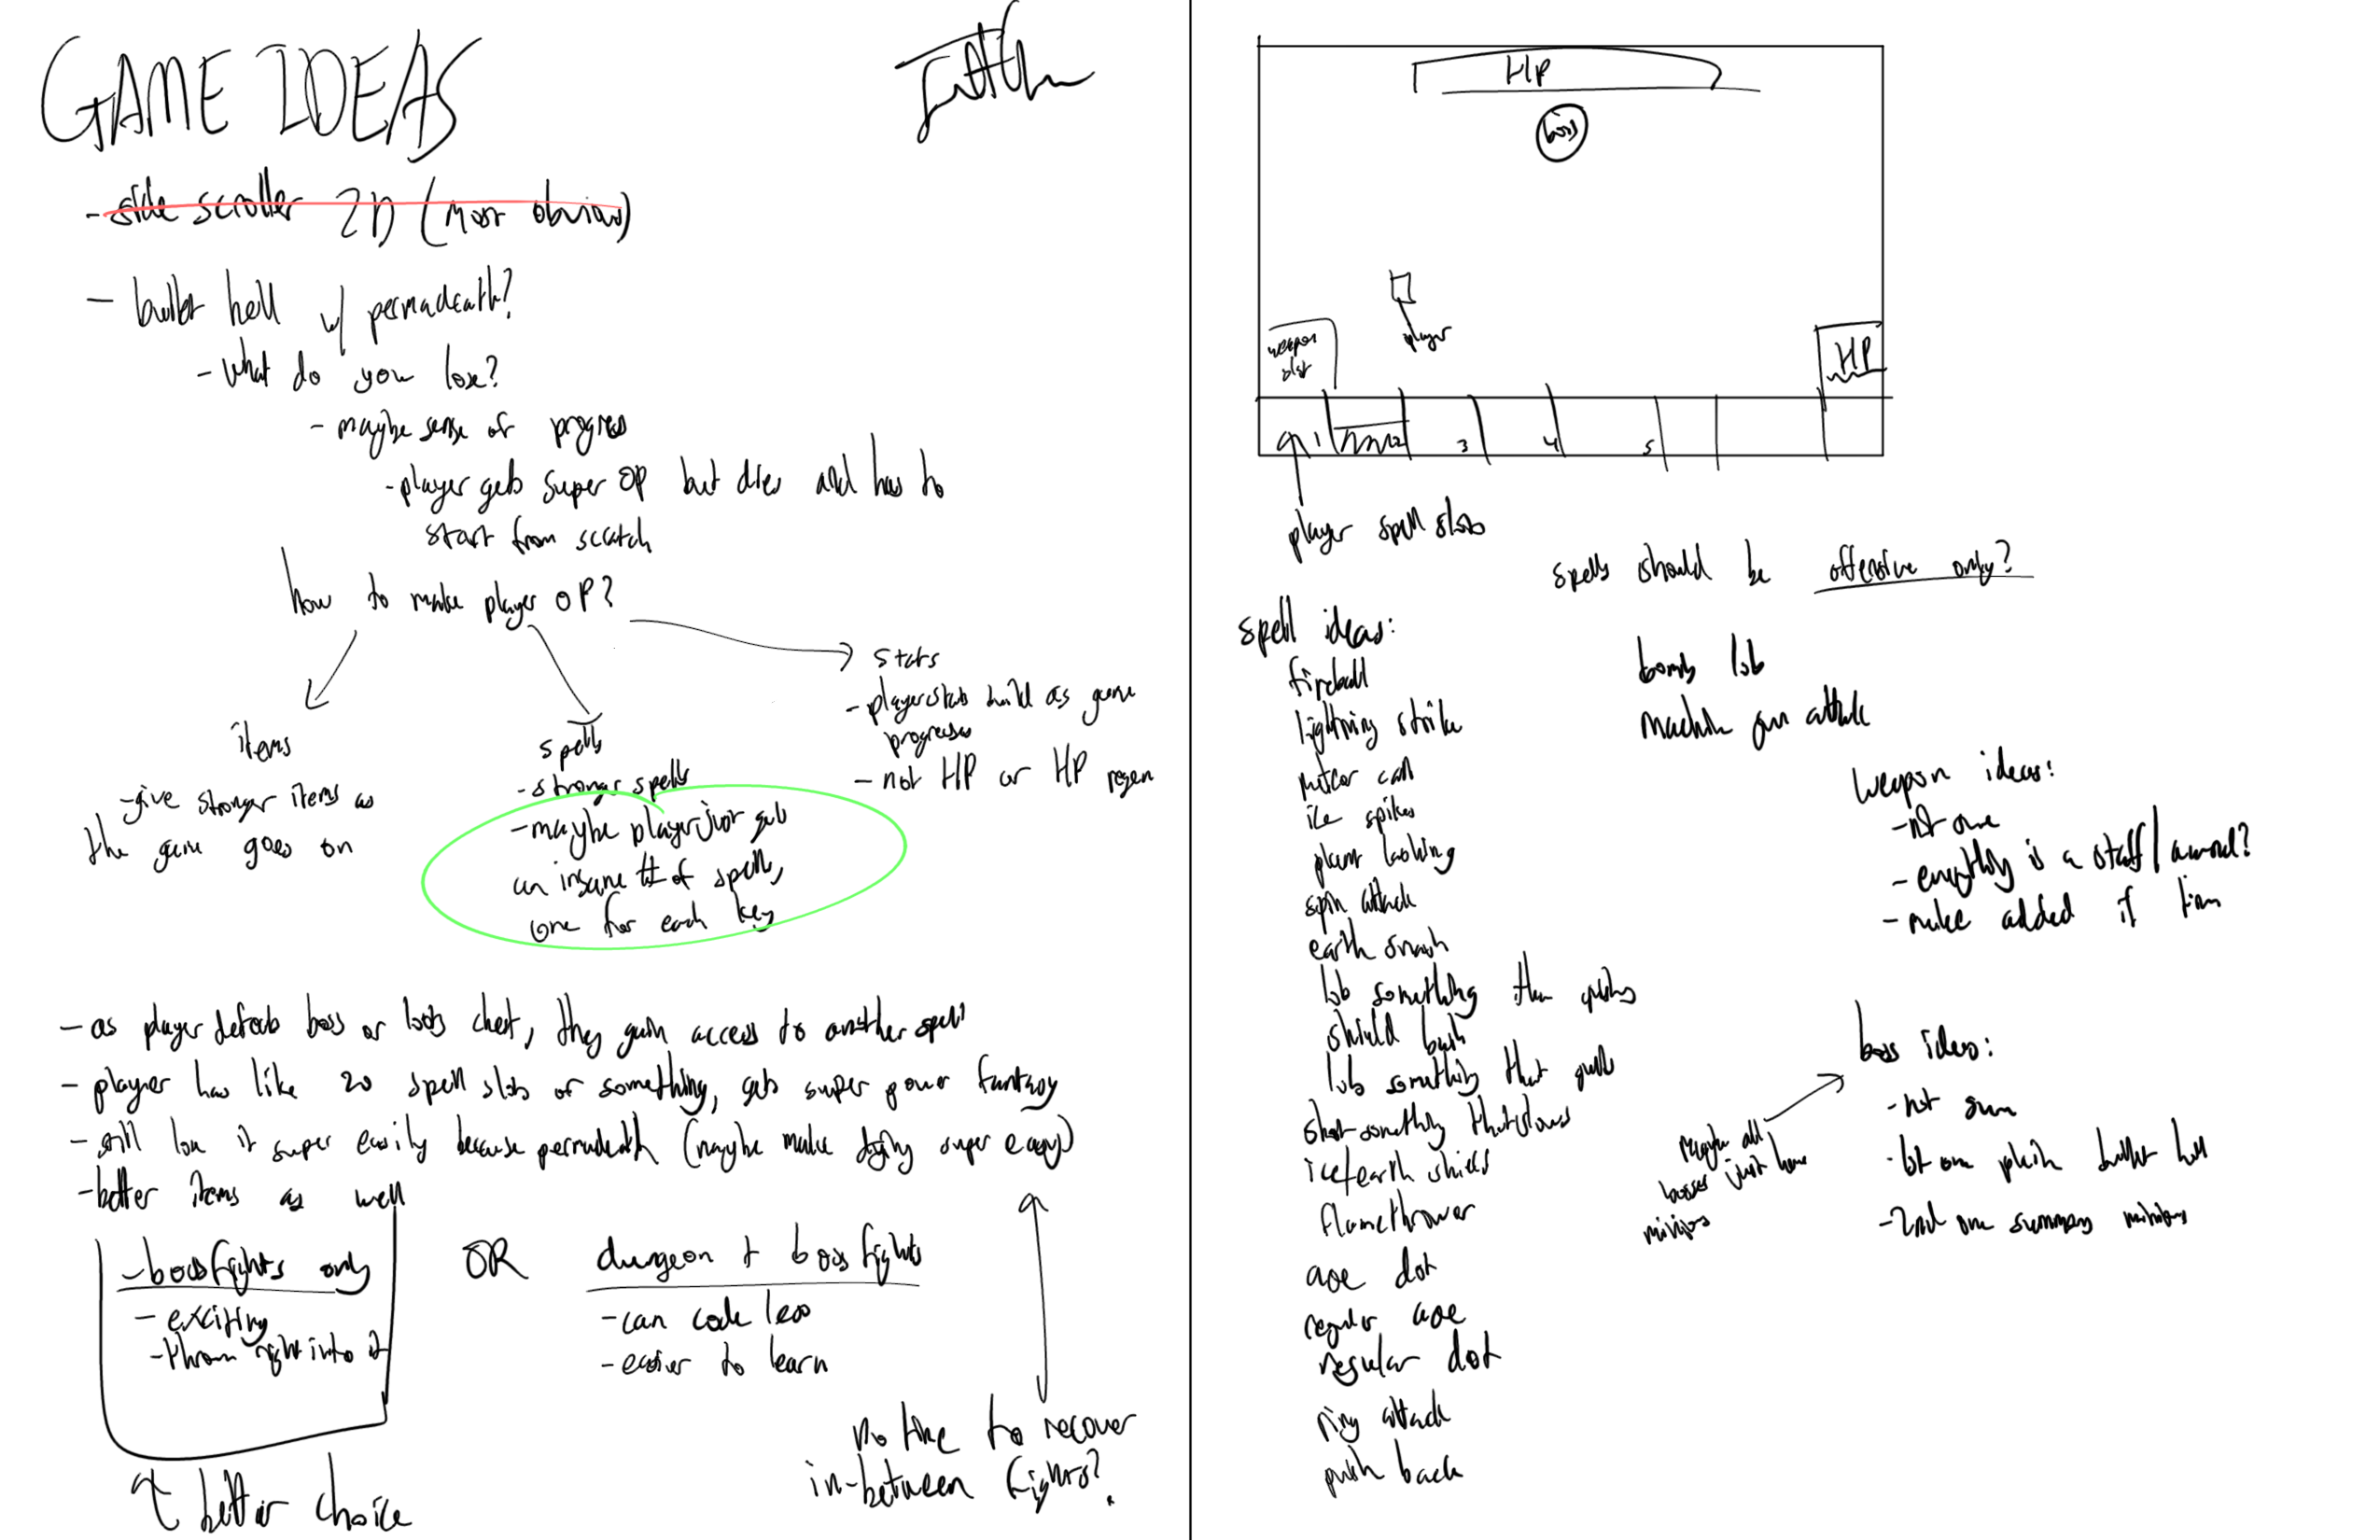 GAME IDEAS
- side scroller 2D (most obvious)
- bullet hell w/ permadeath?
- what do you lose?
- maybe sense of progress
- player gets super OP but dies and has to
start from scratch
how to make player OP?
items
- give stronger items as
the game goes on
spells
- stronger spells
- maybe player just gets
an insane # of spells,
one for each key
stats
- player stats build as game
progresses
- not HP or HP regen
- as player defeats boss or loots chest, they gain access to another spell
- player has like 20 spell slots or something, gets super power fantasy
- still lose it super easily because permadeath (maybe make dying super easy?)
- better items as well
- boss fights only
- exciting
- thrown right into it
OR
dungeon + boss fights
- can code less
- easier to learn
↑ better choice
no time to recover
in-between fights?
HP
boss
player
weapon
slot
HP
1 2 3 4 5
player spell slots
spells should be offensive only?
spell ideas:
fireball
lightning strike
meteor call
ice spikes
plant lashing
spin attack
earth smash
lob something that pushes
shield bash
lob something that pulls
shoot something that slows
ice/earth shield
flamethrower
aoe dot
regular aoe
regular dot
ring attack
push back
bomb lob
machine gun attack
weapon ideas:
- not one
- everything is a staff/sword?
- make added if time
boss ideas:
- not sure
- 1st one plain bullet hell
- 2nd one summons minions
maybe all
bosses just have
minions